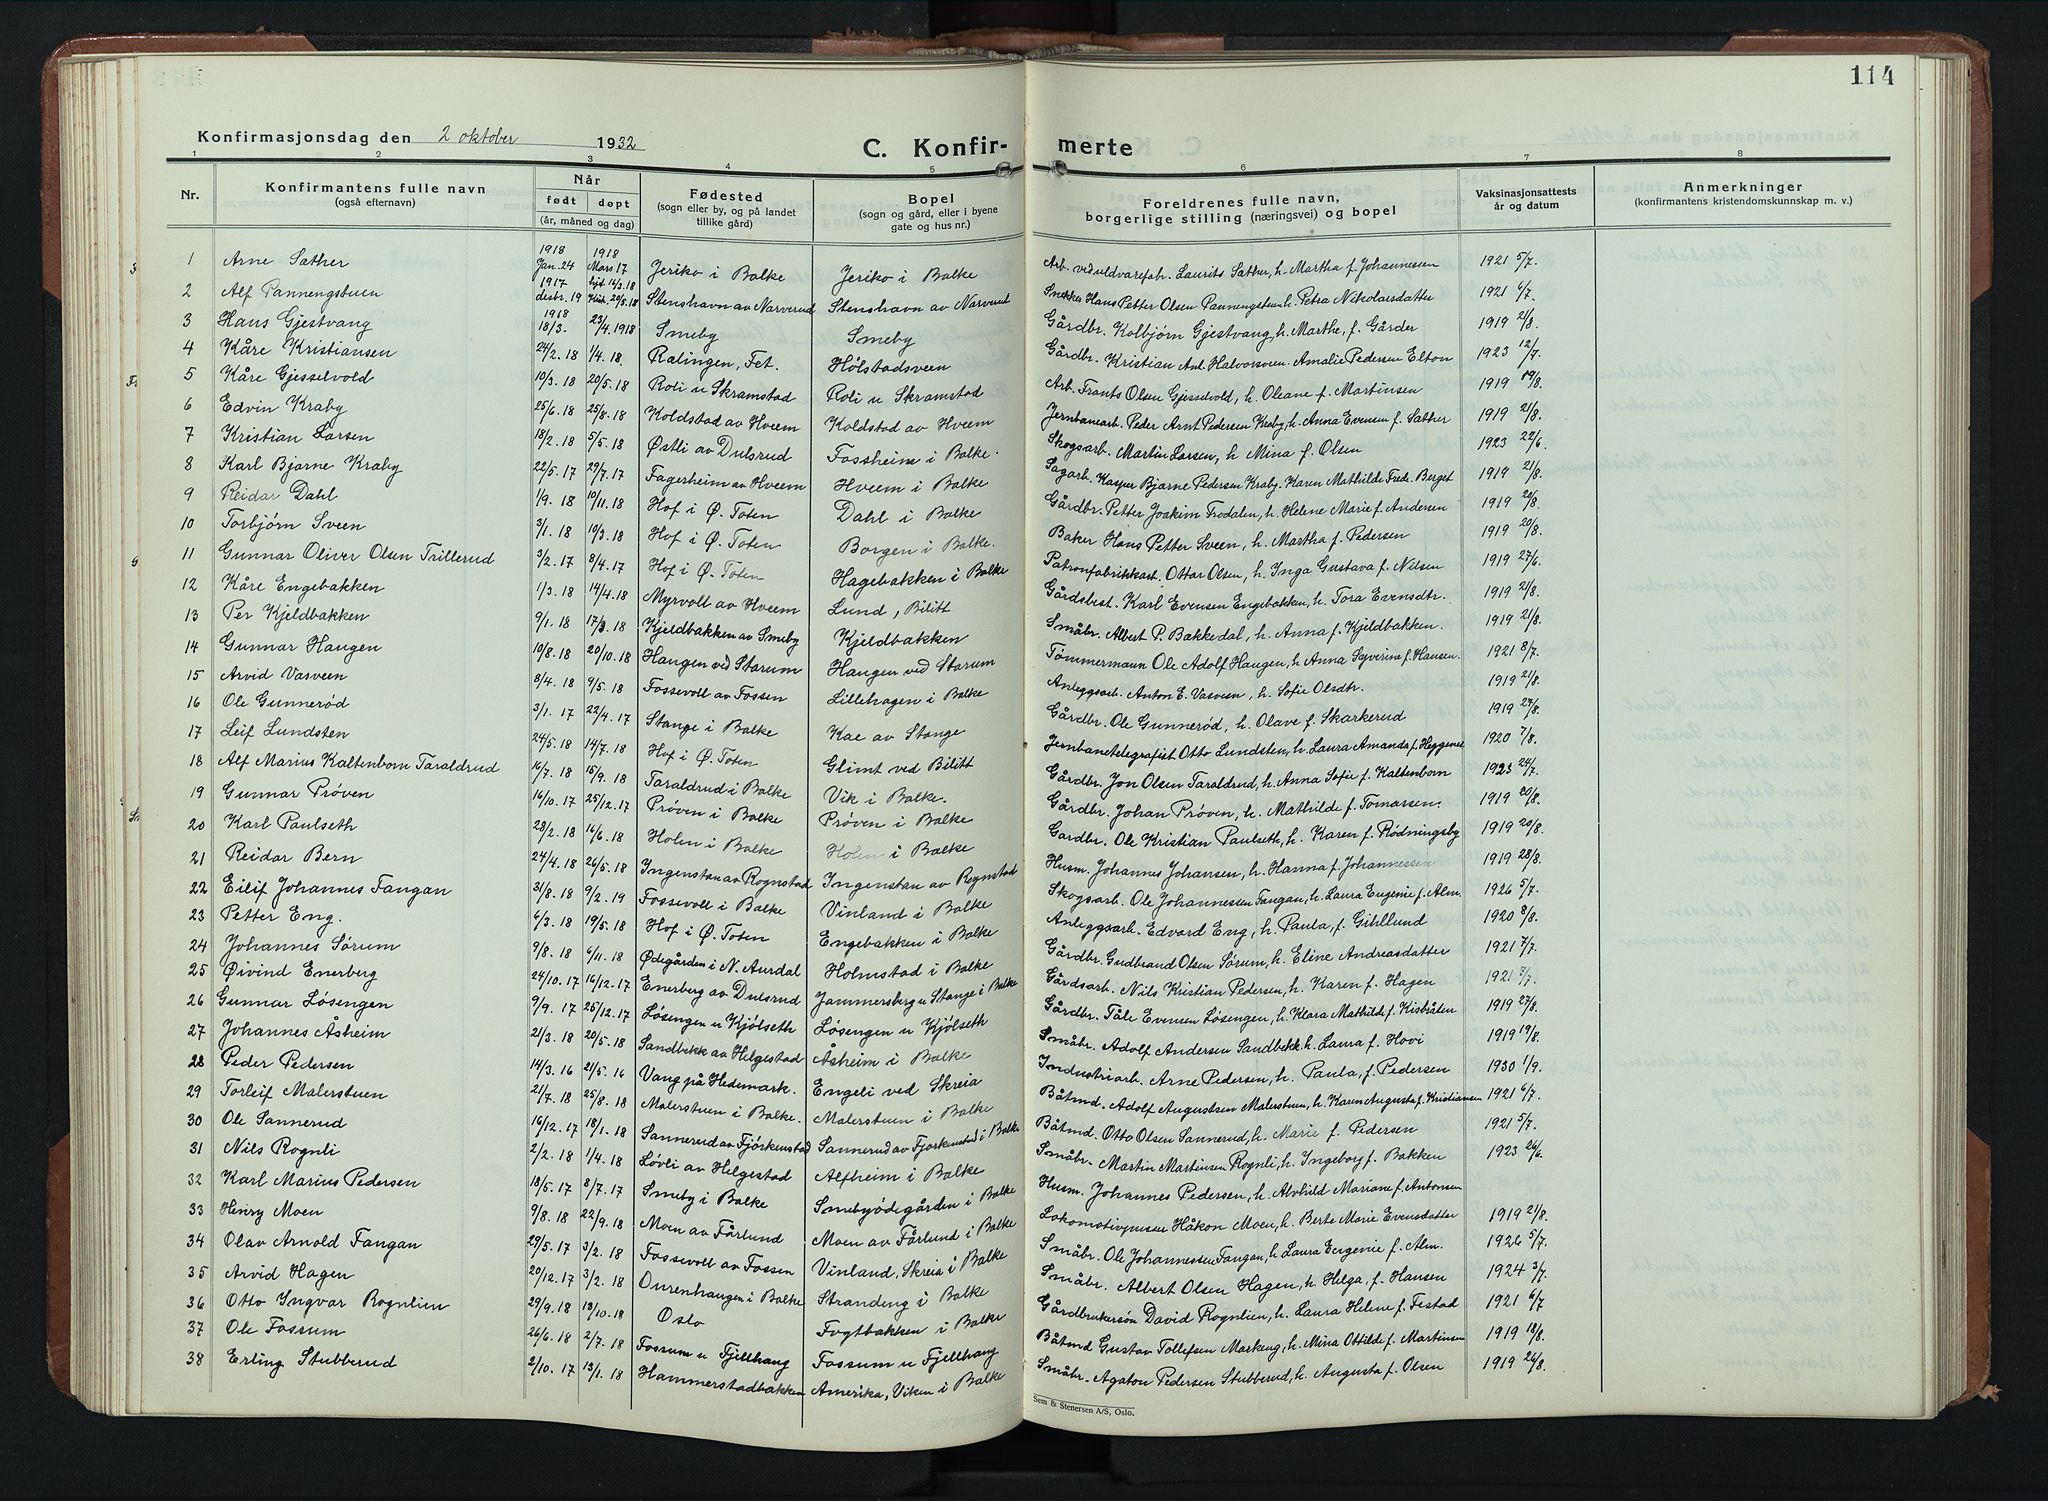 114
Konfirmasjonsdag den 2 oktober 1932
C. Konfirmerte
1 2 3 4 5 6 7 8
Nr.
Konfirmantens fulle navn
(også efternavn)
Når
født døpt
(år, måned og dag)
Fødested
(sogn eller by, og på landet
tillike gård)
Bopel
(sogn og gård, eller i byene
gate og hus nr.)
Foreldrenes fulle navn,
borgerlige stilling (næringsvei) og bopel
Vaksinasjonsattests
år og datum
Anmerkninger
(konfirmantens kristendomskunnskap m. v.)
1 Arne Sæther 1918 Jan. 24 1918 Mars 17 Jeriko i Balke Jeriko i Balke Arb. ved uldvarefab. Laurits Sæther, h. Martha f. Johannesen 1921 5/7.
2 Alf Pannengstuen 1917 desbr. 19 hjt 16/3.18 Kirk. 20/5.18 Stenshavn av Narverud Stenshavn av Narverud Snekker Hans Petter Olsen Pannengstuen h. Petra Nikolaisdatter 1921 6/7.
3 Hans Gjestvang 1918 18/3. 23/4.1918 Smeby Smeby Gårdbr. Kolbjørn Gjestvang, h. Marthe, f. Gårder 1919 21/8.
4 Kåre Kristiansen 24/2.18 1/4.18. Rælingen, Fet. Hølstadsveen Gårdbr. Kristian Ant. Halvorsveen. Amalie Pedersen Elton 1923 12/7.
5 Kåre Gjesselvold 10/3.18 20/5.18 Roli u Skramstad Roli u Skramstad Arb. Frants Olsen Gjesselvold, h. Oleane f. Martinsen 1919 19/8.
6 Edvin Kraby 25/6.18 25/8.18 Koldstad av Hveem Koldstad av Hveem Jernbanearb. Peder Arnt Pedersen Kraby, h. Anna Evensen f. Sæther 1919 21/8.
7 Kristian Larsen 18/2.18 5/5.18 Østli av Dulsrud Fossheim i Balke. Skogsarb. Martin Larsen, h Mina f. Olsen 1923 22/6.
8 Karl Bjarne Kraby 22/5.17 29/7.17 Fagerheim av Hveem Hveem i Balke Sagarb. Kasper Bjarne Pedersen Kraby. Karen Mathilde Fredr. Berget 1919 21/8.
9 Reidar Dahl 1/9.18 10/11.18 Hof i Ø. Toten Dahl i Balke Gårdbr. Petter Joakim Frodalen, h. Helene Marie f. Andersen 1919 20/8.
10 Torbjørn Sveen 3/1.18 10/3.18 Hof i Ø. Toten Borgen i Balke. Baker Hans Petter Sveen, h. Martha f. Pedersen 1919 20/8.
11 Gunnar Oliver Olsen Trillerud 3/2.17 8/4.17 Hof i Ø. Toten Hagebakken i Balke Patronfabrikkarb. Ottar Olsen, h. Inga Gustava f. Nilsen 1919 27/6.
12 Kåre Engebakken 1/3.18 14/4.18 Myrvoll av Hveem Lund, Bilitt Gårdsbest. Karl Evensen Engebakken, h. Tora Evensdtr. 1919 21/8.
13 Per Kjeldbakken 9/1.18 17/3.18 Kjeldbakken av Smeby Kjeldbakken Småbr. Albert P. Bakkedal, h. Anna f. Kjeldbakken. 1919 21/8.
14 Gunnar Haugen 10/8.18 20/10.18 Haugen ved Starum Haugen ved Starum Tømmermann Ole Adolf Haugen, h. Anna Sejverine f. Hansen. 1921 8/7.
15 Arvid Vasveen 8/4.18 9/5.18 Fossevoll av Fossen Lillehagen i Balke Anleggsarb. Anton E. Vasveen, h. Sofie Olsdtr. 1919 21/8.
16 Ole Gunnerød 3/1.17 22/4.17 Stange i Balke Kae av Stange Gårdbr. Ole Gunnerød, h. Olave f. Skarkerud 1919 27/8.
17 Leif Lundsten 24/5.18 14/7.18 Hof i Ø. Toten Glimt ved Bilitt Jernbanetelegrafist Otto Lundsten, h. Laura Amanda f. Heggenes 1920 7/8.
18 Alf Marius Kaltenborn Taraldrud 16/7.18 15/9.18 Taraldrud i Balke Vik i Balke. Gårdbr. Jon Olsen Taraldrud, h. Anna Sofie f. Kaltenborn 1923 24/7.
19 Gunnar Prøven 16/10.17 25/12.17 Prøven i Balke Prøven i Balke Gårdbr. Johan Prøven, h. Mathilde f. Tomassen. 1919 20/8.
20 Karl Paulseth 28/2.18 16/6.18 Holen i Balke Holen i Balke Gårdbr. Ole Kristian Paulseth, h. Karen f. Rødningsby 1919 20/8.
21 Reidar Bern 24/4.18 26/5.18 Ingenstau av Rognstad Ingenstau av Rognstad Husm. Johannes Johansen, h. Hanna f. Johannessen 1919 28/8.
22 Eilif Johannes Fangan 31/8.18 9/2.19 Fossevoll i Balke Vinland i Balke Skogsarb. Ole Johannessen Fangan, h. Laura Eugenie f. Alm. 1926 5/7.
23 Petter Eng. 6/3.18 19/5.18 Hof i Ø. Toten Engebakken i Balke Anleggsarb. Edvard Eng, h. Paula, f. Gihllund 1920 8/8.
24 Johannes Sørum 9/8.18 6/11.18 Ødegården i N. Aurdal Holmstad i Balke Gårdbr. Gudbrand Olsen Sørum, h. Eline Andreasdatter 1921 7/7.
25 Øivind Enerberg 24/10.17 16/12.17 Enerberg av Dulsrud Jammersberg u Stange i Balke Gårdsarb. Nils Kristian Pedersen, h. Karen f. Hagen 1921 7/7.
26 Gunnar Løsengen 9/9.17 26/12.17 Løsengen u Kjølseth Løsengen u Kjølseth Gårdbr. Tåle Evensen Løsengen, h. Klara Mathilde f. Kisbråten 1919 27/8.
27 Johannes Åsheim 21/3.18 20/5.18 Sandbekk av Helgestad Åsheim i Balke Småbr. Adolf Andersen Sandbekk. h. Laura f. Hovi 1919 19/8.
28 Peder Pedersen 14/3.16 21/5.16 Vang på Hedemark. Engeli ved Skreia Industriarb. Arne Pedersen, h. Paula, f. Pedersen 1930 1/9.
29 Torleif Malerstuen 21/7.18 25/8.18 Malerstuen i Balke. Malerstuen i Balke Båtmd. Adolf Augustsen Malerstuen, h. Karen Augusta f. Kristiansen 1921 6/7.
30 Ole Sannerud 16/12.17 18/1.18 Sannerud av Fjørkenstad Sannerud av Fjørkenstad i Balke Båtmd. Otto Olsen Sannerud, h. Marie f. Pedersen 1921 5/7.
31 Nils Rognli 2/2.18 1/4.18 Løvli av Helgestad Alfheim i Balke Småbr. Martin Martinsen Rognli, h. Ingeborg f. Bakken 1923 26/6.
32 Karl Marius Pedersen 18/5.17 8/7.17 Smeby i Balke Smebyødegården i Balke Husm. Johannes Pedersen, h. Alvhild Mariane f. Antonsen
33 Henry Moen 9/8.18 22/9.18 Moen av Fårlund Moen av Fårlund i Balke Lokomotivpusser Håkon Moen, h. Berte Marie Evensdatter 1919 21/8.
34 Olav Arnold Fangan 29/5.17 3/2.18 Fossevoll av Fossen Vinland, Skreia i Balke Småbr. Ole Johannessen Fangan, h. Laura Eugenie f. Alm. 1926 5/7.
35 Arvid Hagen 20/12.17 3/2.18 Ourenhaugen i Balke Strandeng i Balke Småbr. Albert Olsen Hagen, h. Helga, f. Hansen 1924 3/7.
36 Otto Ingvar Rognlien 29/9.18 13/10.18 Oslo Fogtbakken i Balke Gårdbrukersøn David Rognlien, h. Laura Helene f. Festad 1921 6/7
37 Ole Fossum 26/6.18 2/7.18 Fossum u Fjellhaug Fossum u Fjellhaug Båtmd Gustav Tollefsen Markeng, h. Mina Ottilde f. Martinsen 1919 18/8.
38 Erling Stubberud 2/10.17 13/1.18 Hammerstadbakken Amerika, Viken i Balke Småbr. Agaton Pedersen Stubberud, h. Augusta f. Olsen 1919 26/8.
Sem & Stenersen A/S, Oslo.